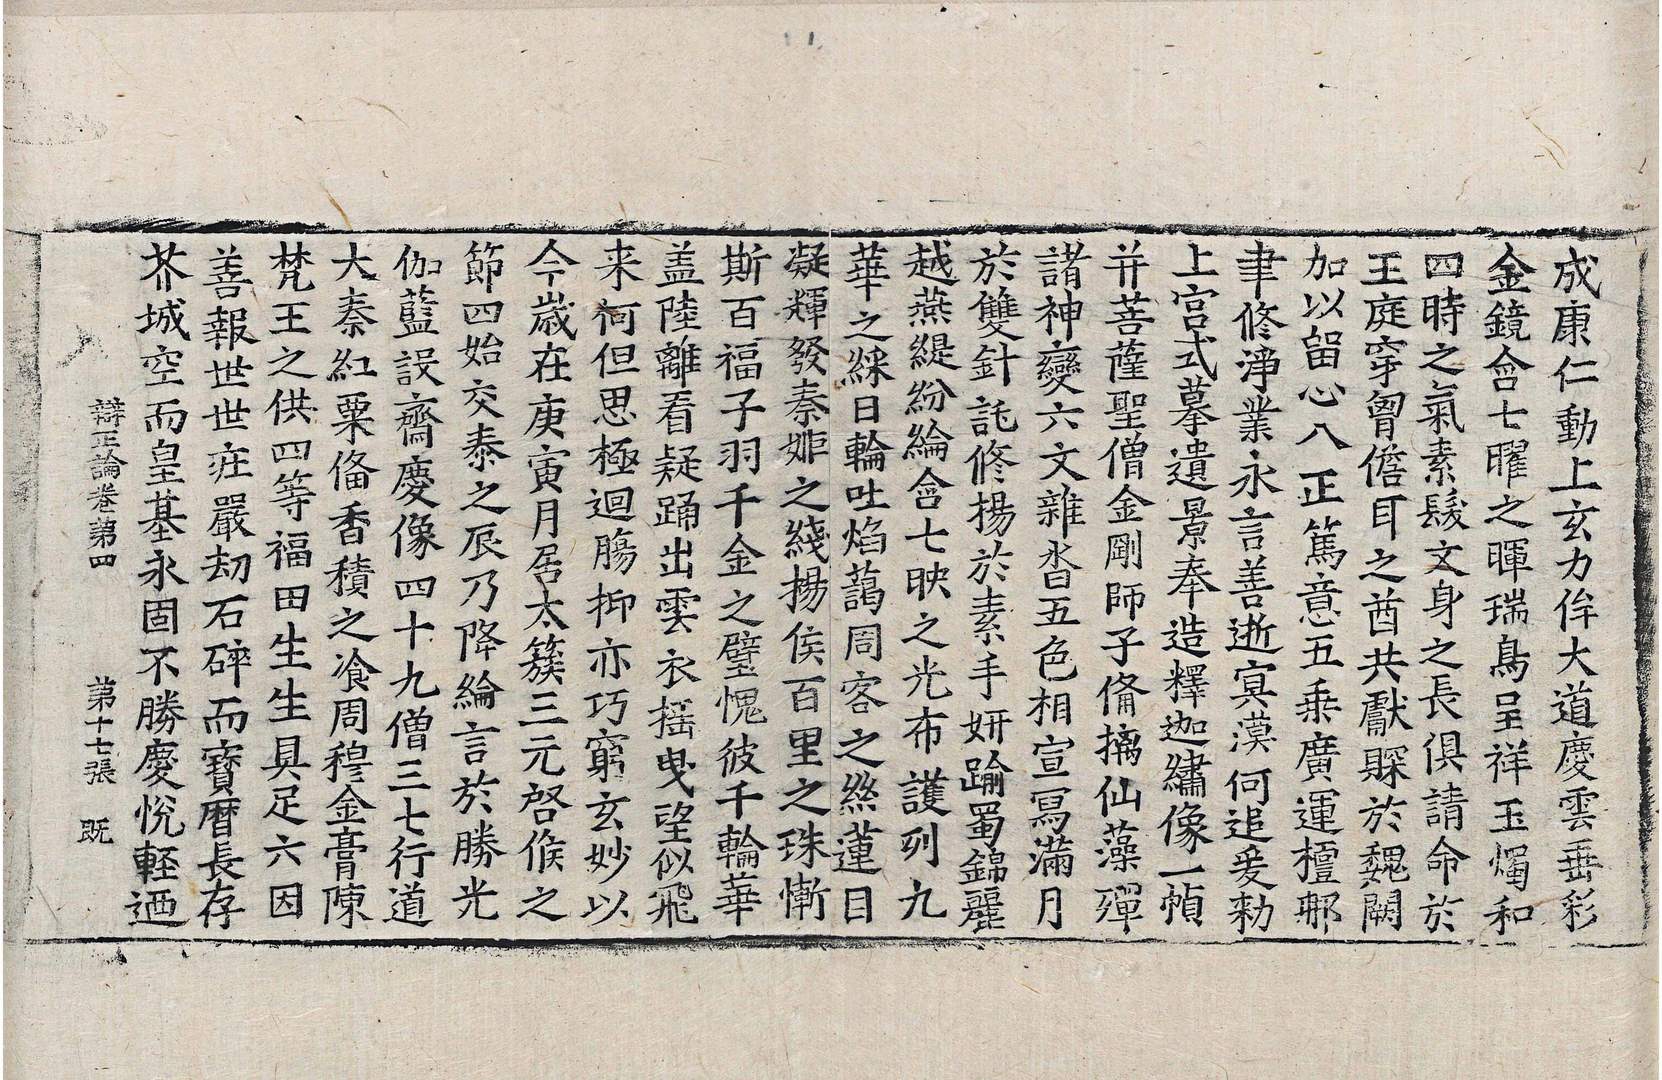 成康仁動上玄力侔大道慶雲垂彩
金鏡含七曜之暉瑞鳥呈祥玉燭和
四時之氣素髮文身之長俱請命於
王庭穿胷儋耳之酋共獻賝於魏闕
加以留心八正篤意五乗廣運檀那
聿修淨業永言善逝寘漠何追爰勑
上宮式摹遺景奉造釋迦繡像一幀
并菩薩聖僧金剛師子俻摛仙藻殫
諸神變六文雜沓五色相宣冩滿月
於雙針託修揚於素手妍踰蜀錦麗
越燕緹紛綸含七映之光布護列九
華之綵日輪吐焰藹周客之絲蓮目
凝輝發秦姫之綫揚侯百里之珠慚
斯百福子羽千金之璧愧彼千輪華
盖陸離看疑踊出雲衣揺曳望似飛
来何但思極迴膓抑亦巧窮玄妙以
今歲在庚寅月居太簇三元啓候之
節四始交泰之辰乃降綸言於勝光
伽藍設齋慶像四十九僧三七行道
大秦紅粟俻香積之飡周穆金膏陳
梵王之供四等福田生生具足六因
善報世世莊嚴刧石碎而寶曆長存
芥城空而皇基永固不勝慶悅輕迺
辯正論卷第四 第十七張 既